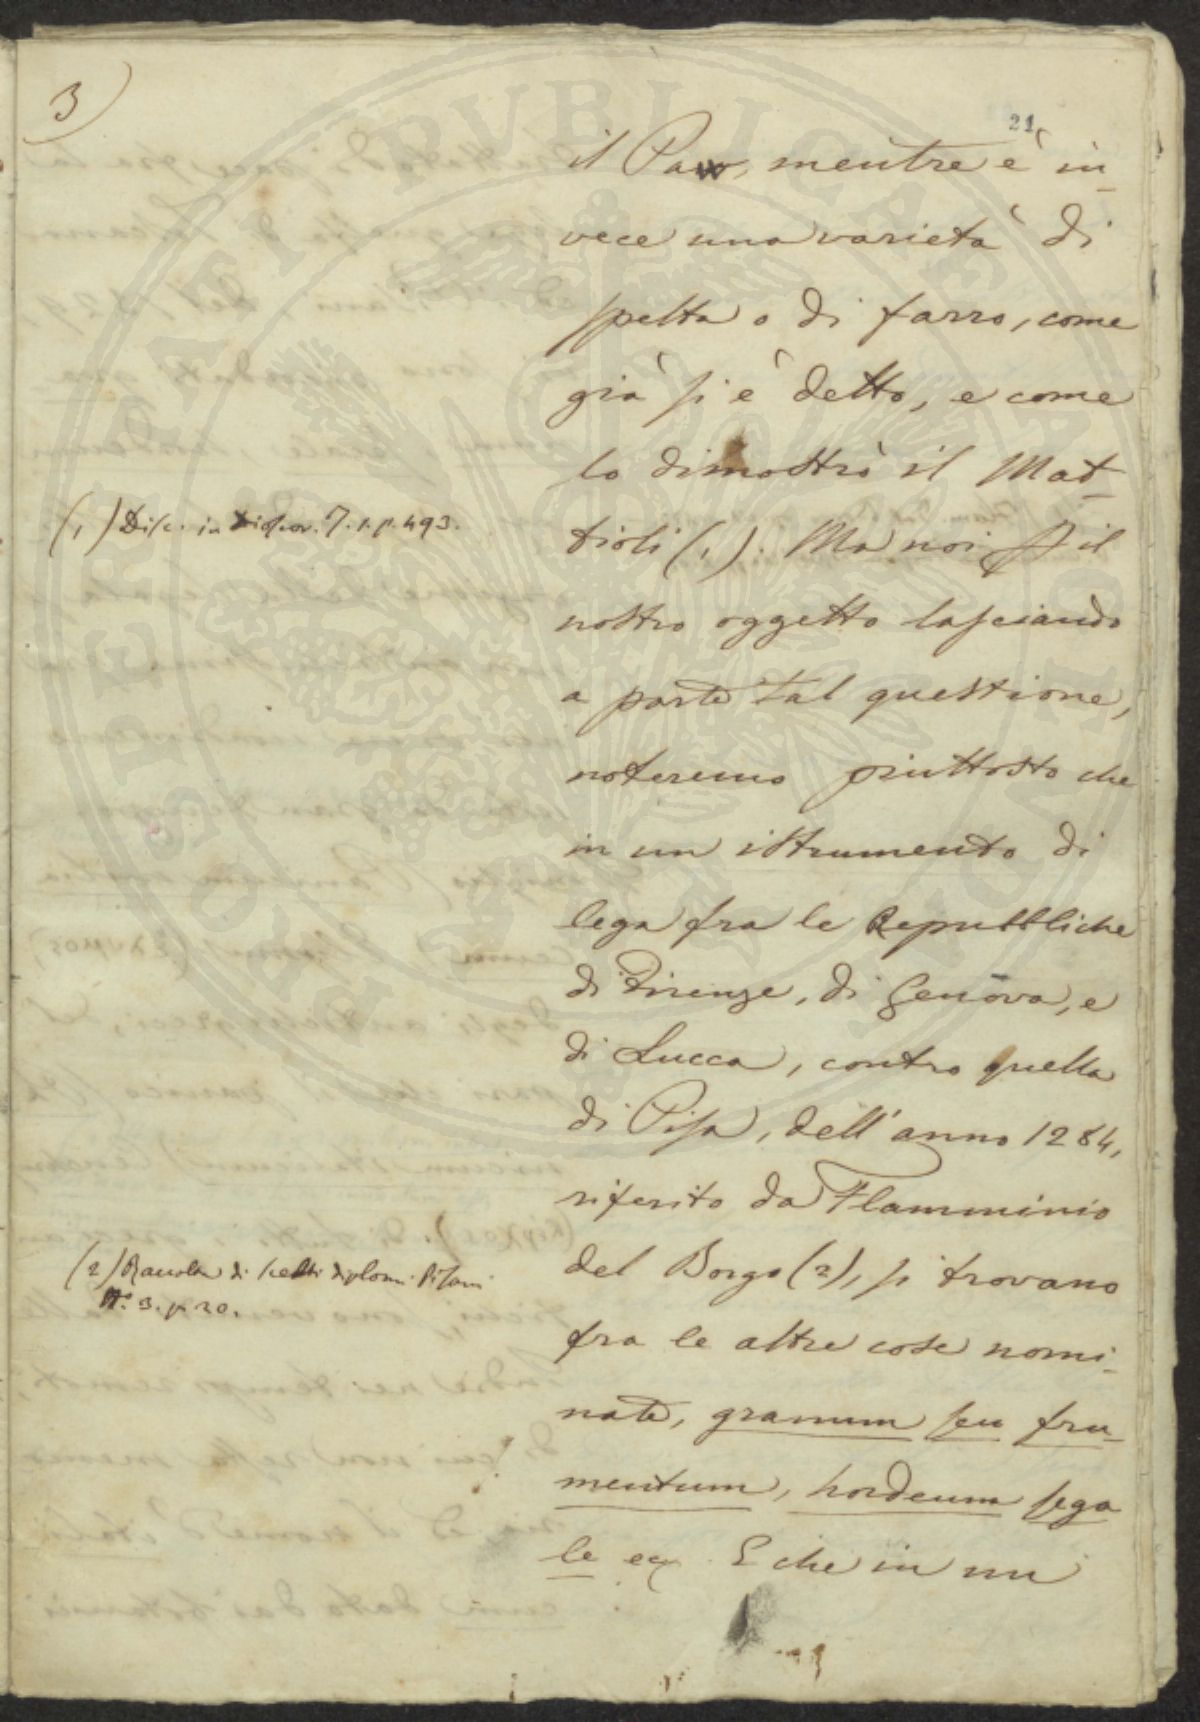 3)
21
il Pavo, mentre è in-
vece una varietà di
spelta o di farro, come
già si è detto, e come
lo dimostrò il Mat-
tioli (1). Ma noi p il
nostro oggetto lasciando
a parte tal questione,
noteremo piuttosto che
in un istrumento di
lega fra le Repubbliche
di Firenze, di Genova, e
di Lucca, contro quella
di Pisa, dell'anno 1284,
riferito da Flamminio
del Borgo (2), si trovano
fra le altre cose nomi-
nate, granum seu fru-
mentum, hordeum sega
le ec. E che in un
(1) Disc. in Dioscor. T. 1. p. 493.
(2) Raccolta di scelti diplomi Pisani
N.° 3. p. 20.